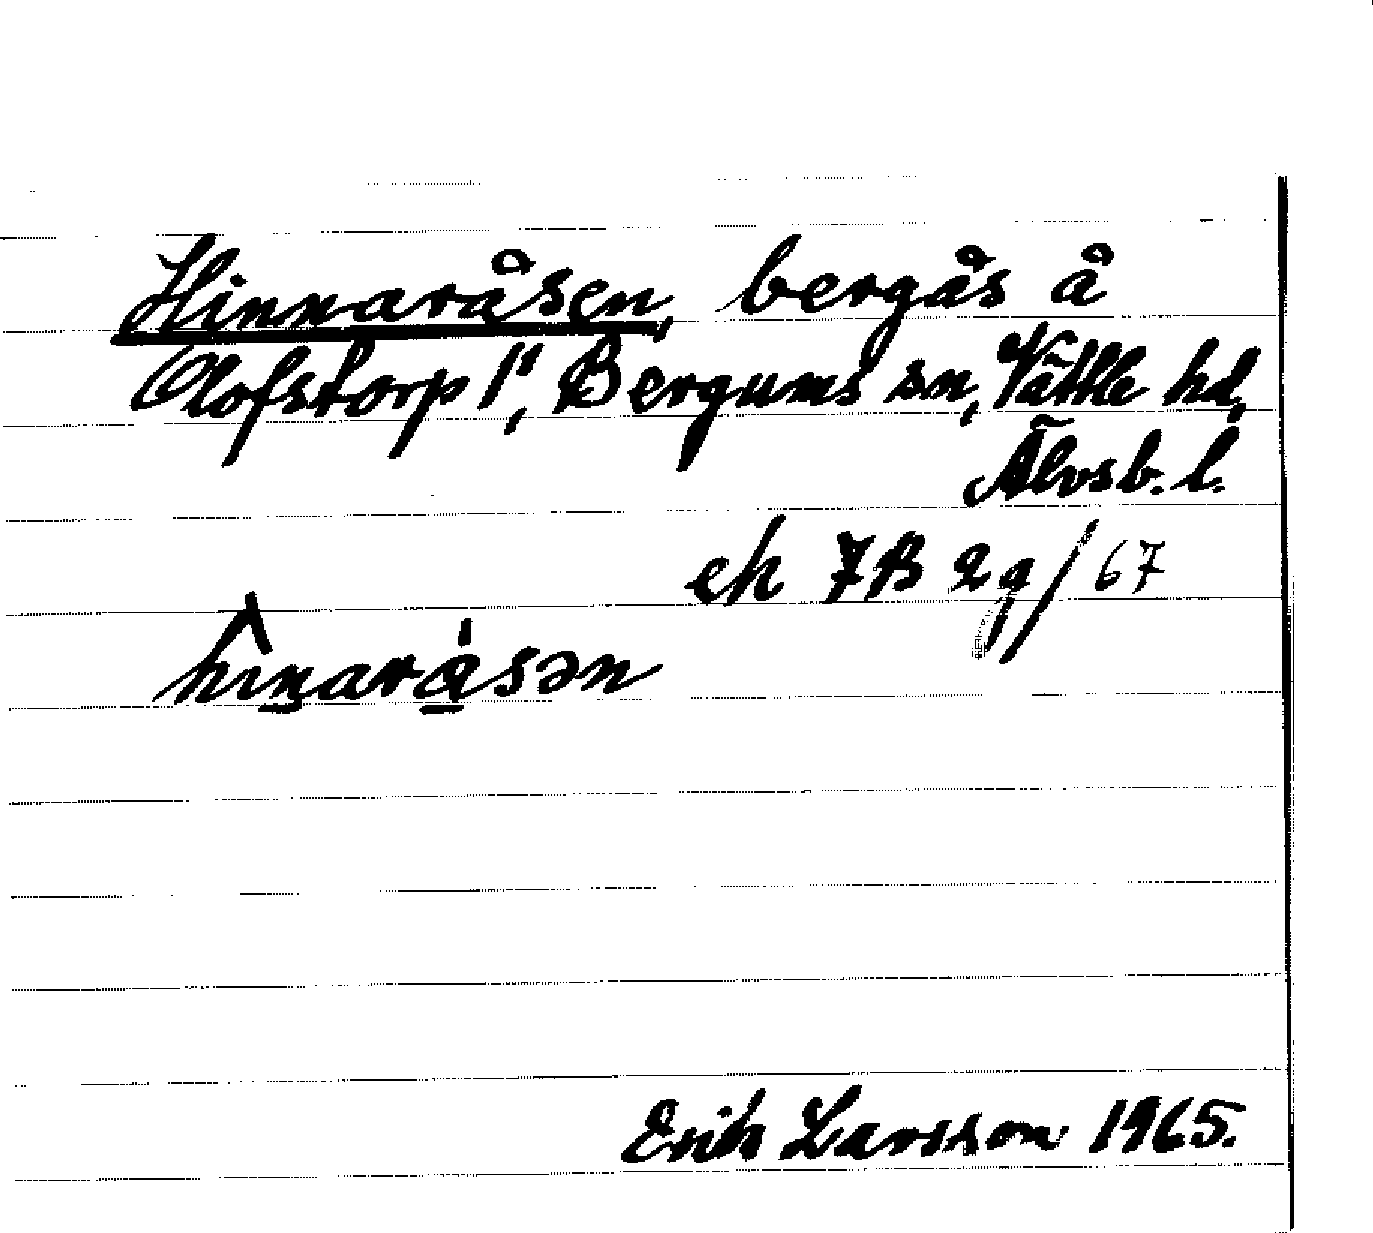 Hinnaråsen, bergås å
Olofstorp 1", Bergums sn, Vättle hd,
Älvsb. l.
ek 7B 2g/67
hınaråsən
Erik Larsson 1965.